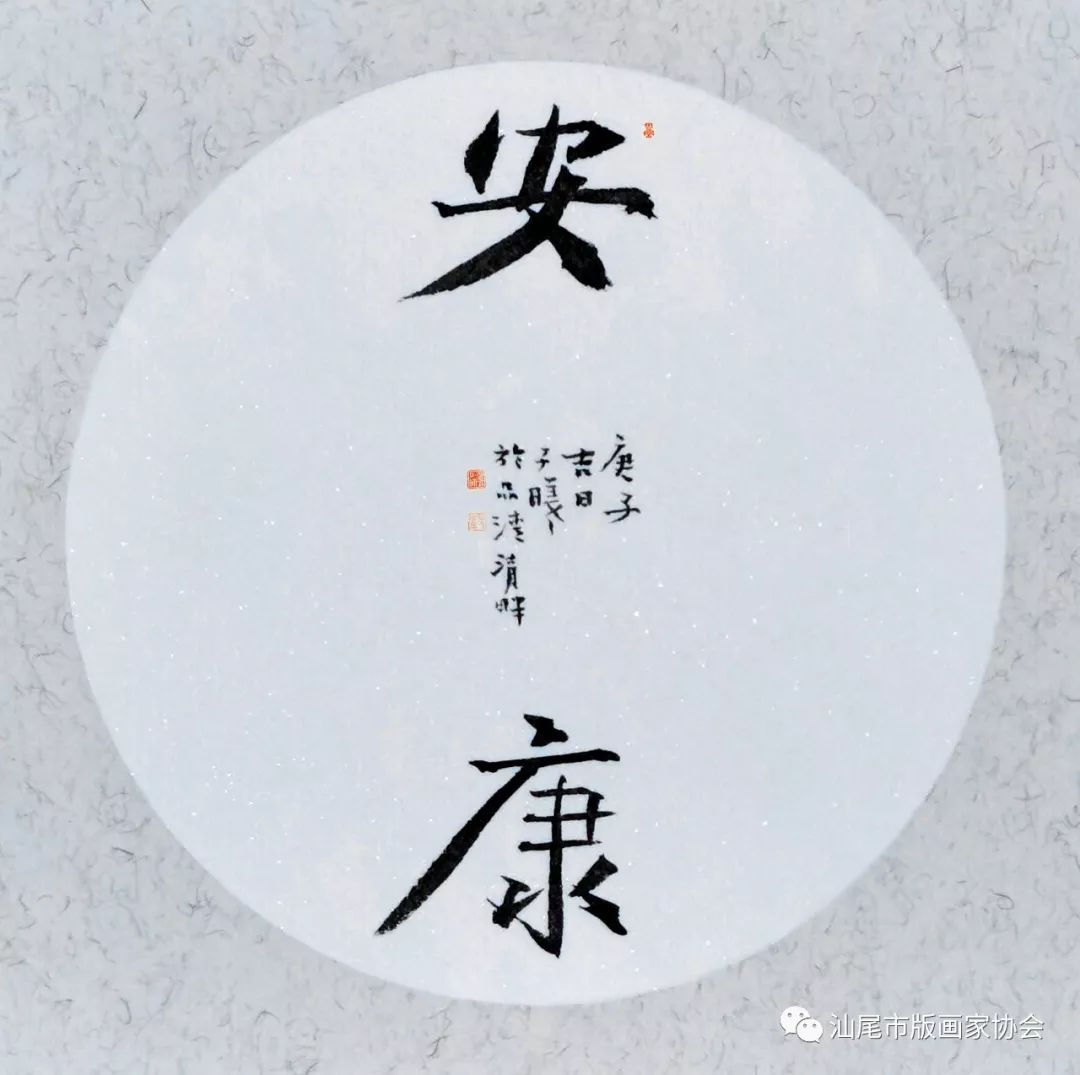 安
康
庚子
吉日
子曦
於品清湖畔
汕尾市版画家协会